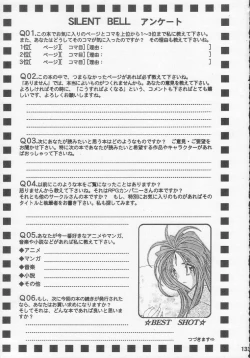 SILENT BELL アンケート
Q01.この本でお気に入りのページとコマを上位から1~3位まで私に教えて下さい。
また、あなたはどうしてそのコマが気に入ったのですか? その理由も教えて下さい。
1位[ ページ][ コマ目][理由: ]
2位[ ページ][ コマ目][理由: ]
3位[ ページ][ コマ目][理由: ]
Q02.この本の中で、つまらなかったページがあれば必ず教えて下さいね。
「ありません」では、本当にいいものがつくれませんから、あなたの意見を教えて下さい。
よろしければその時に、「こうすればよくなる」という、コメントも下さればとても嬉
しいです、よろしくお願いしますね。
Q03.次にあなたが読みたいと思う本はどのようなものですか? ご意見・ご要望を
お聞かせ下さい。特に次の本であなたが読みたいと希望する作品やキャラクターがあれ
ばおっしゃって下さいね。
Q04.以前にこのような本をご覧になったことはありますか?
怒りませんから教えて下さいね。それはRPGカンパニーさんの本ですか?
それとも他のサークルさんの本ですか? もし、特別にお気に入りのものがあればその
タイトルと執筆者をお書き下さい。私も探してみます。
Q05.あなたが今一番好きなアニメやマンガ、
音楽や小説などがあれば私に教えて下さい。
◆アニメ
◆マンガ
◆音楽
◆小説
◆その他
Q06.もし、次に今回の本の続きが発行された
なら、あなたはお買い求めになりますか?
そしてそれは、どんな本であれば良いと思いま
すか?
☆BEST SHOT☆
つづきます⇒